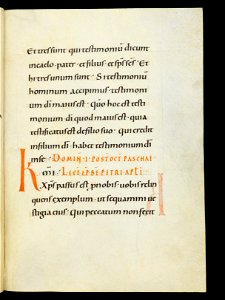 Et tres sunt qui testimoniũ dicunt
in caelo · pater · et filius et sp̃s sc̃s · Et
hi tres unum sunt · Si testimoniũ
hominum accipimus · testimoni
um dĩ maius est · Qm̃ hoc est testi
monium dĩ quod maius est · quia
testificatus est de filio suo · Qui credit
in filium dĩ · habet testimonium dĩ
in se · DOMIN · I · POST OCT PASCHAE
LEC EP̃ BI PETRI AP̃LI
Kmi · Xp̃s passus est p nobis · uobis relin
quens exemplum · ut sequamini ue
stigia eius · Qui peccatum non fecit